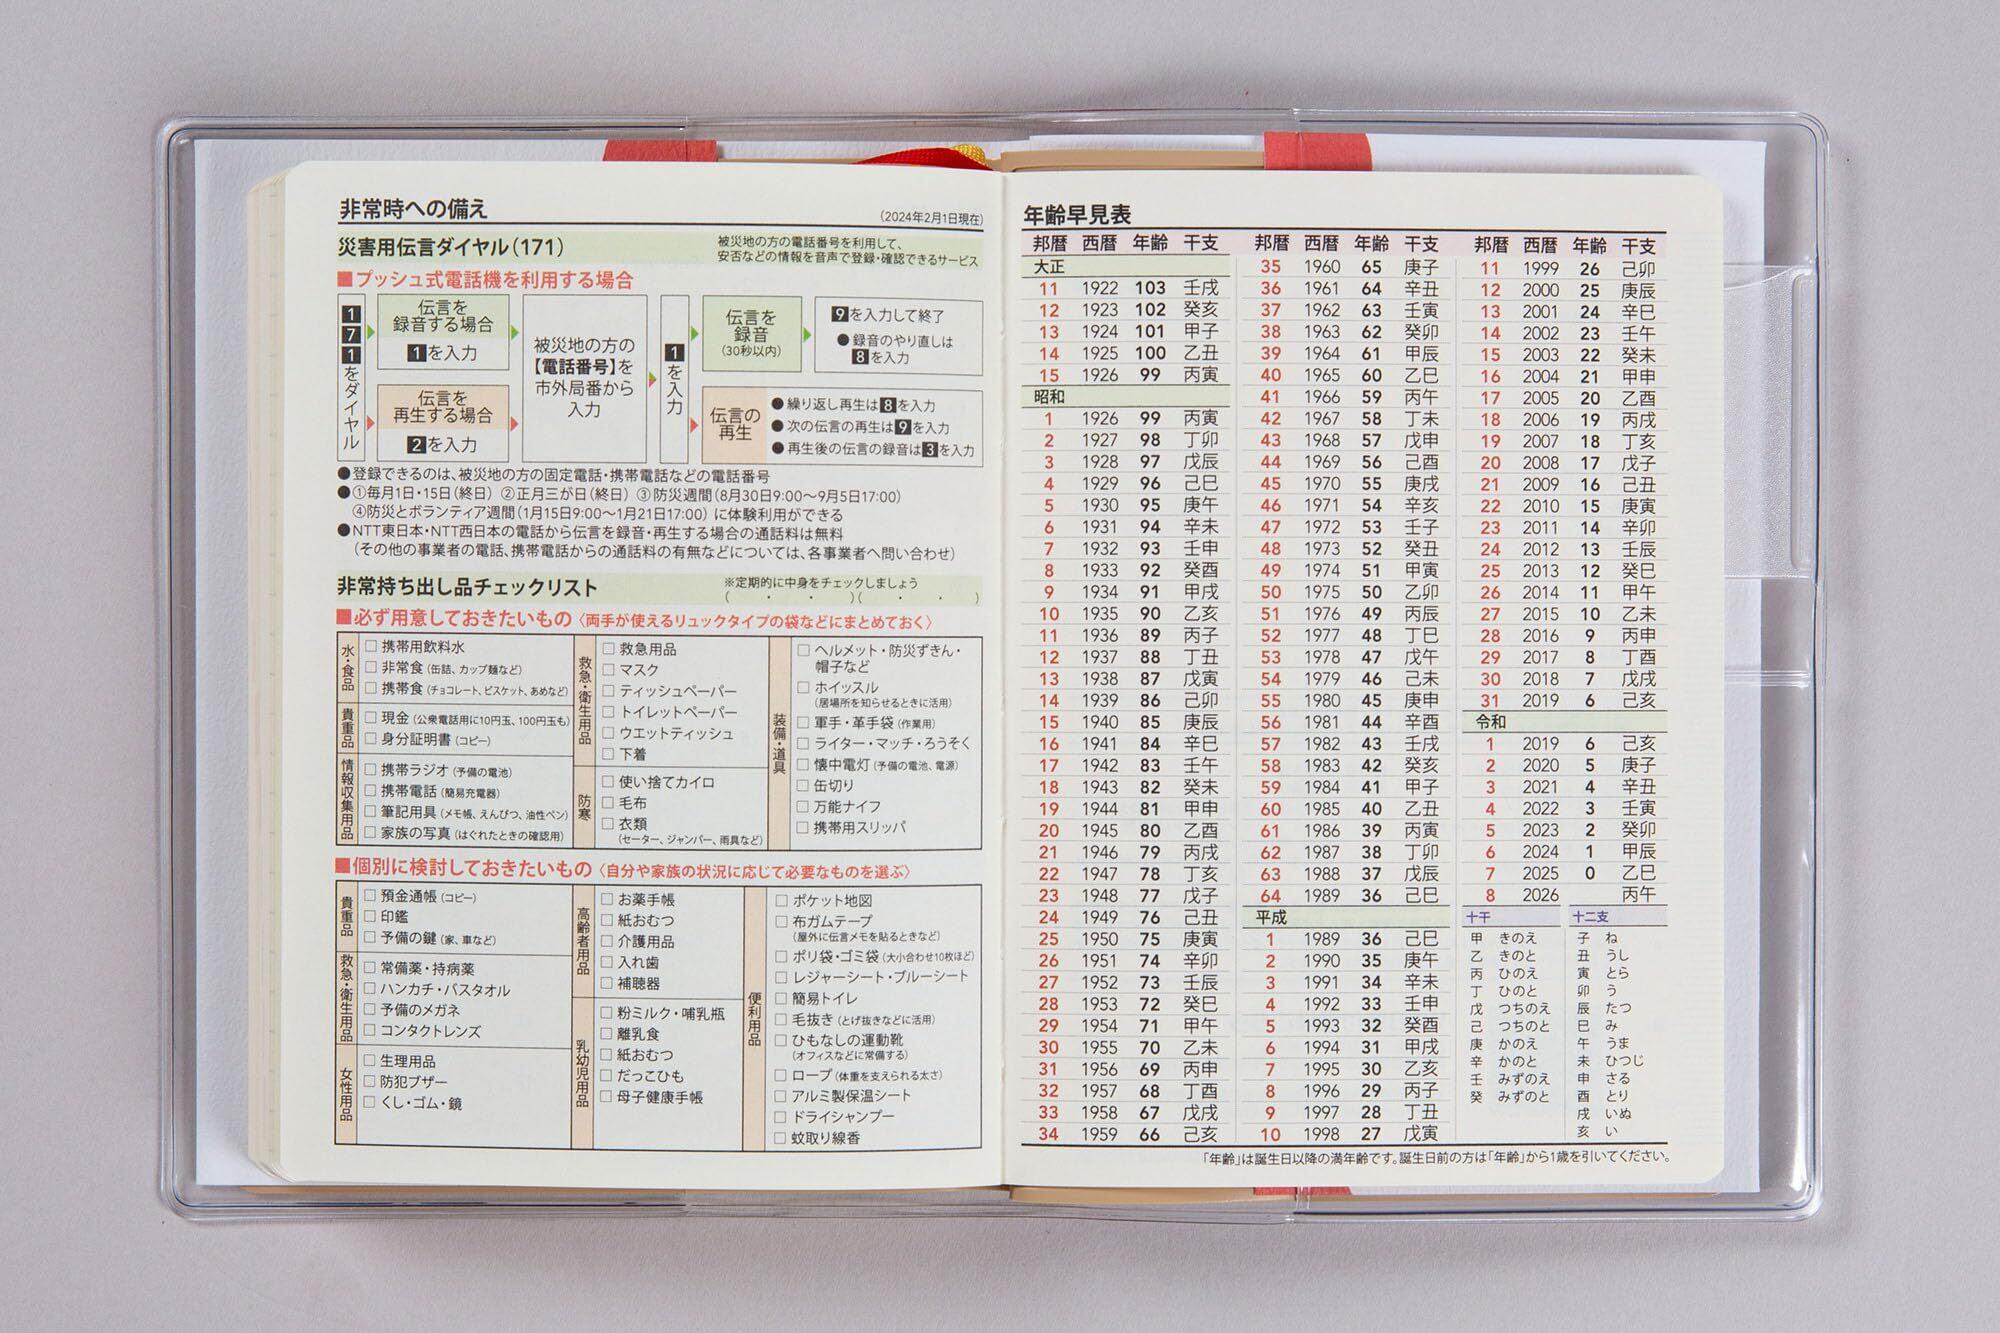 非常時への備え
(2024年2月1日現在)
災害用伝言ダイヤル(171)
被災地の方の電話番号を利用して、
安否などの情報を音声で登録・確認できるサービス
■プッシュ式電話機を利用する場合
171をダイヤル
伝言を
録音する場合
1を入力
伝言を
再生する場合
2を入力
被災地の方の
【電話番号】を
市外局番から
入力
1を入力
伝言を
録音
(30秒以内)
9を入力して終了
●録音のやり直しは
8を入力
伝言の
再生
●繰り返し再生は8を入力
●次の伝言の再生は9を入力
●再生後の伝言の録音は3を入力
●登録できるのは、被災地の方の固定電話・携帯電話などの電話番号
●①毎月1日・15日(終日) ②正月三が日(終日) ③防災週間(8月30日9:00〜9月5日17:00)
④防災とボランティア週間(1月15日9:00〜1月21日17:00) に体験利用ができる
●NTT東日本・NTT西日本の電話から伝言を録音・再生する場合の通話料は無料
(その他の事業者の電話、携帯電話からの通話料の有無などについては、各事業者へ問い合わせ)
非常持ち出し品チェックリスト
※定期的に中身をチェックしましょう
( ・ ・ )( ・ ・ )
■必ず用意しておきたいもの〈両手が使えるリュックタイプの袋などにまとめておく〉
水・食品
□携帯用飲料水
□非常食(缶詰、カップ麺など)
□携帯食(チョコレート、ビスケット、あめなど)
貴重品
□現金(公衆電話用に10円玉、100円玉も)
□身分証明書(コピー)
情報収集用品
□携帯ラジオ(予備の電池)
□携帯電話(簡易充電器)
□筆記用具(メモ帳、えんぴつ、油性ペン)
□家族の写真(はぐれたときの確認用)
救急・衛生用品
□救急用品
□マスク
□ティッシュペーパー
□トイレットペーパー
□ウエットティッシュ
□下着
防寒
□使い捨てカイロ
□毛布
□衣類
(セーター、ジャンパー、雨具など)
装備・道具
□ヘルメット・防災ずきん・
帽子など
□ホイッスル
(居場所を知らせるときに活用)
□軍手・革手袋(作業用)
□ライター・マッチ・ろうそく
□懐中電灯(予備の電池、電源)
□缶切り
□万能ナイフ
□携帯用スリッパ
■個別に検討しておきたいもの〈自分や家族の状況に応じて必要なものを選ぶ〉
貴重品
□預金通帳(コピー)
□印鑑
□予備の鍵(家、車など)
救急・衛生用品
□常備薬・持病薬
□ハンカチ・バスタオル
□予備のメガネ
□コンタクトレンズ
女性用品
□生理用品
□防犯ブザー
□くし・ゴム・鏡
高齢者用品
□お薬手帳
□紙おむつ
□介護用品
□入れ歯
□補聴器
乳幼児用品
□粉ミルク・哺乳瓶
□離乳食
□紙おむつ
□だっこひも
□母子健康手帳
便利用品
□ポケット地図
□布ガムテープ
(屋外に伝言メモを貼るときなど)
□ポリ袋・ゴミ袋(大小合わせ10枚ほど)
□レジャーシート・ブルーシート
□簡易トイレ
□毛抜き(とげ抜きなどに活用)
□ひもなしの運動靴
(オフィスなどに常備する)
□ロープ(体重を支えられる太さ)
□アルミ製保温シート
□ドライシャンプー
□蚊取り線香
年齢早見表
邦暦 西暦 年齢 干支
大正
11 1922 103 壬戌
12 1923 102 癸亥
13 1924 101 甲子
14 1925 100 乙丑
15 1926 99 丙寅
昭和
1 1926 99 丙寅
2 1927 98 丁卯
3 1928 97 戊辰
4 1929 96 己巳
5 1930 95 庚午
6 1931 94 辛未
7 1932 93 壬申
8 1933 92 癸酉
9 1934 91 甲戌
10 1935 90 乙亥
11 1936 89 丙子
12 1937 88 丁丑
13 1938 87 戊寅
14 1939 86 己卯
15 1940 85 庚辰
16 1941 84 辛巳
17 1942 83 壬午
18 1943 82 癸未
19 1944 81 甲申
20 1945 80 乙酉
21 1946 79 丙戌
22 1947 78 丁亥
23 1948 77 戊子
24 1949 76 己丑
25 1950 75 庚寅
26 1951 74 辛卯
27 1952 73 壬辰
28 1953 72 癸巳
29 1954 71 甲午
30 1955 70 乙未
31 1956 69 丙申
32 1957 68 丁酉
33 1958 67 戊戌
34 1959 66 己亥
邦暦 西暦 年齢 干支
35 1960 65 庚子
36 1961 64 辛丑
37 1962 63 壬寅
38 1963 62 癸卯
39 1964 61 甲辰
40 1965 60 乙巳
41 1966 59 丙午
42 1967 58 丁未
43 1968 57 戊申
44 1969 56 己酉
45 1970 55 庚戌
46 1971 54 辛亥
47 1972 53 壬子
48 1973 52 癸丑
49 1974 51 甲寅
50 1975 50 乙卯
51 1976 49 丙辰
52 1977 48 丁巳
53 1978 47 戊午
54 1979 46 己未
55 1980 45 庚申
56 1981 44 辛酉
57 1982 43 壬戌
58 1983 42 癸亥
59 1984 41 甲子
60 1985 40 乙丑
61 1986 39 丙寅
62 1987 38 丁卯
63 1988 37 戊辰
64 1989 36 己巳
平成
1 1989 36 己巳
2 1990 35 庚午
3 1991 34 辛未
4 1992 33 壬申
5 1993 32 癸酉
6 1994 31 甲戌
7 1995 30 乙亥
8 1996 29 丙子
9 1997 28 丁丑
10 1998 27 戊寅
邦暦 西暦 年齢 干支
11 1999 26 己卯
12 2000 25 庚辰
13 2001 24 辛巳
14 2002 23 壬午
15 2003 22 癸未
16 2004 21 甲申
17 2005 20 乙酉
18 2006 19 丙戌
19 2007 18 丁亥
20 2008 17 戊子
21 2009 16 己丑
22 2010 15 庚寅
23 2011 14 辛卯
24 2012 13 壬辰
25 2013 12 癸巳
26 2014 11 甲午
27 2015 10 乙未
28 2016 9 丙申
29 2017 8 丁酉
30 2018 7 戊戌
31 2019 6 己亥
令和
1 2019 6 己亥
2 2020 5 庚子
3 2021 4 辛丑
4 2022 3 壬寅
5 2023 2 癸卯
6 2024 1 甲辰
7 2025 0 乙巳
8 2026 丙午
十干
甲 きのえ
乙 きのと
丙 ひのえ
丁 ひのと
戊 つちのえ
己 つちのと
庚 かのえ
辛 かのと
壬 みずのえ
癸 みずのと
十二支
子 ね
丑 うし
寅 とら
卯 う
辰 たつ
巳 み
午 うま
未 ひつじ
申 さる
酉 とり
戌 いぬ
亥 い
「年齢」は誕生日以降の満年齢です。誕生日前の方は「年齢」から1歳を引いてください。